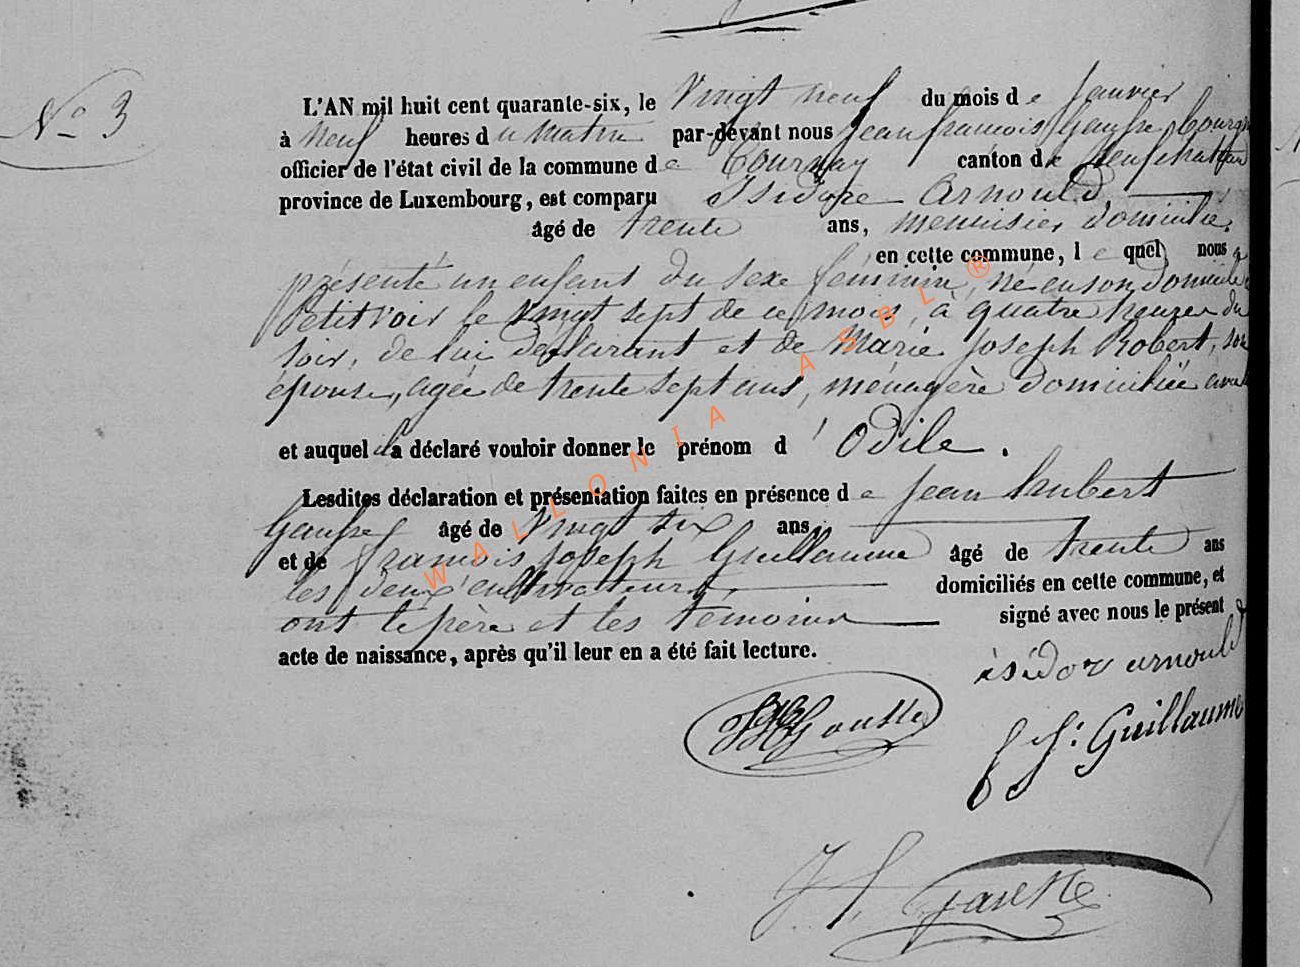 N° 3
L'AN mil huit cent quarante-six, le Vingt neuf du mois de Janvier
à neuf heures du matin par-devant nous Jean françois
officier de l'état civil de la commune de Tournay canton de Neufchateau
province de Luxembourg, est comparu Isidore Arnould,
âgé de trente ans, menuisier domicilié
en cette commune, lequel nous a
présenté un enfant du sexe féminin, né en son domicile
Petitvoir le vingt sept de ce mois, à quatre heures du
soir, de lui déclarant et de Marie Joseph Robert, son
épouse, agée de trente sept ans, ménagère domiciliée avec
et auquel il a déclaré vouloir donner le prénom d'Odile.
Lesdites déclaration et présentation faites en présence de Jean hubert
âgé de Vingt six ans,
et de françois joseph Guillaume âgé de trente ans
les deux cultivateurs, domiciliés en cette commune, et
ont le père et les temoins signé avec nous le présent
acte de naissance, après qu'il leur en a été fait lecture.
isidor arnould
f J: Guillaume
WALLONIA ASBL ®